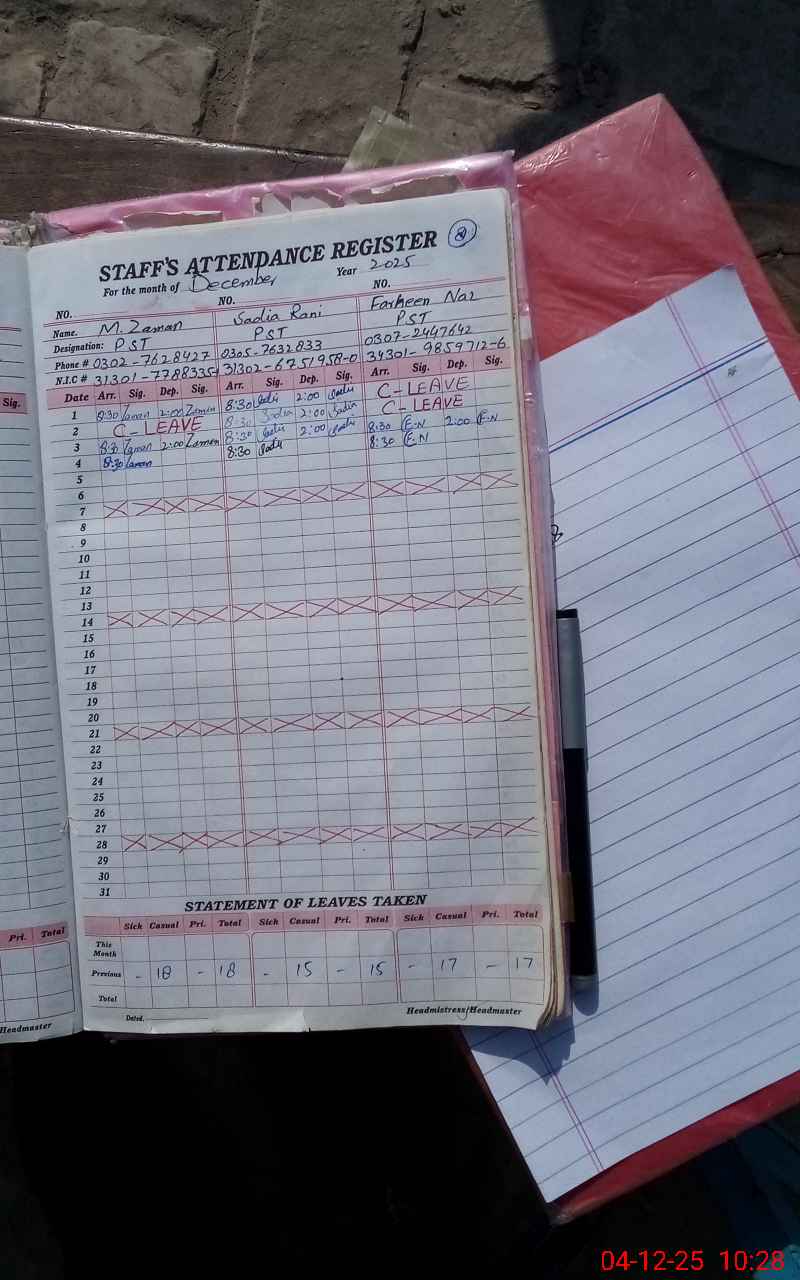 STAFF'S ATTENDANCE REGISTER 8
For the month of December Year 2025
NO. NO. NO.
Name. M. Zaman Sadia Rani Farheen Naz
Designation: PST PST PST
Phone # 0302-7628427 0305-7632833 0307-2447642
N.I.C # 31301-7788335-1 31302-6751958-0 34301-9859712-6
Date Arr. Sig. Dep. Sig. Arr. Sig. Dep. Sig. Arr. Sig. Dep. Sig.
1 8:30 Zaman 2:00 Zaman 8:30 Sadia 2:00 Sadia C-LEAVE
2 C-LEAVE 8:30 Sadia 2:00 Sadia C-LEAVE
3 8:30 Zaman 2:00 Zaman 8:30 Sadia 2:00 Sadia 8:30 F.N 2:00 F.N
4 8:30 Zaman 8:30 Sadia 8:30 F.N
5
6
7
8
9
10
11
12
13
14
15
16
17
18
19
20
21
22
23
24
25
26
27
28
29
30
31
STATEMENT OF LEAVES TAKEN
Sick Casual Pri. Total Sick Casual Pri. Total Sick Casual Pri. Total
This Month
Previous - 18 - 18 - 15 - 15 - 17 - 17
Total
Dated. Headmistress/Headmaster
Sig.
Pri. Total
Headmaster
04-12-25 10:28